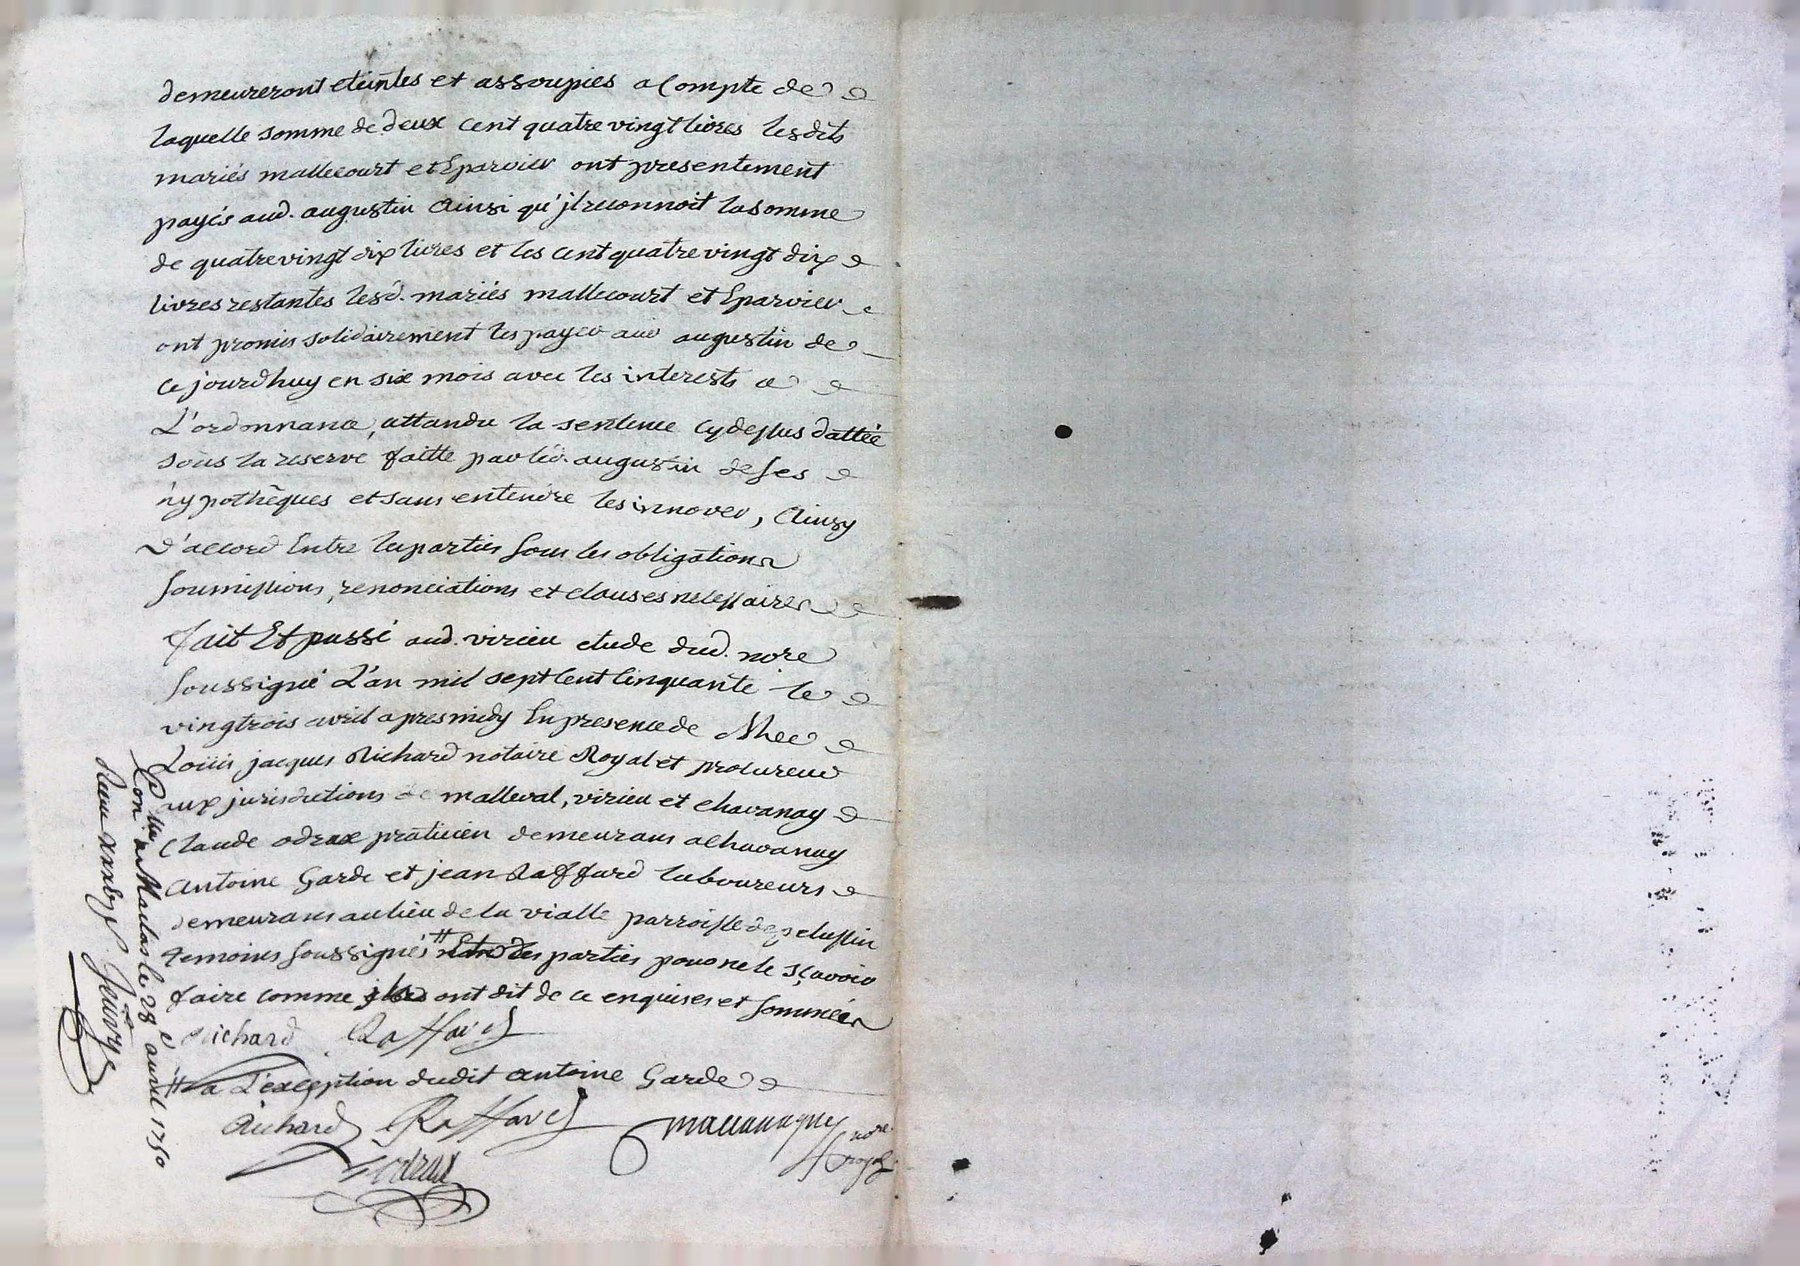 demeureront eteintes et assoupies a Compte de
laquelle somme de deux cent quatre vingt livres lesdits
mariés mallecourt et Eparvier ont presentement
payés aud. augustin Ainsi qu'jl reconnoit la somme
de quatre vingt dix livres et les cent quatre vingt dix
livres restantes lesd. mariés mallecourt et Eparvier
ont promis solidairement les payer aud augustin de
ce jourdhuy en six mois avec les interests a
L'ordonnance, attandu la sentence cydessus dattée
sous la reserve faitte par led. augustin de ses
hypothêques et sans entendre les innover, Ainsy
D'accord Entre les parties sous les obligations
soumissions, renonciations et clauses necessaires
fait Et passé aud. virieu etude dud. nore
soussigné L'an mil sept Cent Cinquante le
vingtrois avril apres midy En presence de Mee
Loüis jacques Richard notaire Royal et procureur
aux jurisdictions de malleval, virieu et chavanay
Claude odrax praticien demeurans a Chavanay
Antoine Garde et jean Raffard laboureurs
demeurans au lieu de la vialle parroisse de pelussin
temoins soussignés # les parties pour ne le sçavoir
faire comme ont dit de ce enquises et sommées
Richard Raffard
# a L'exception dudit antoine Garde
Richard Raffard
odrax
nore
royal
Con. a Maclas le 28e avril 1750